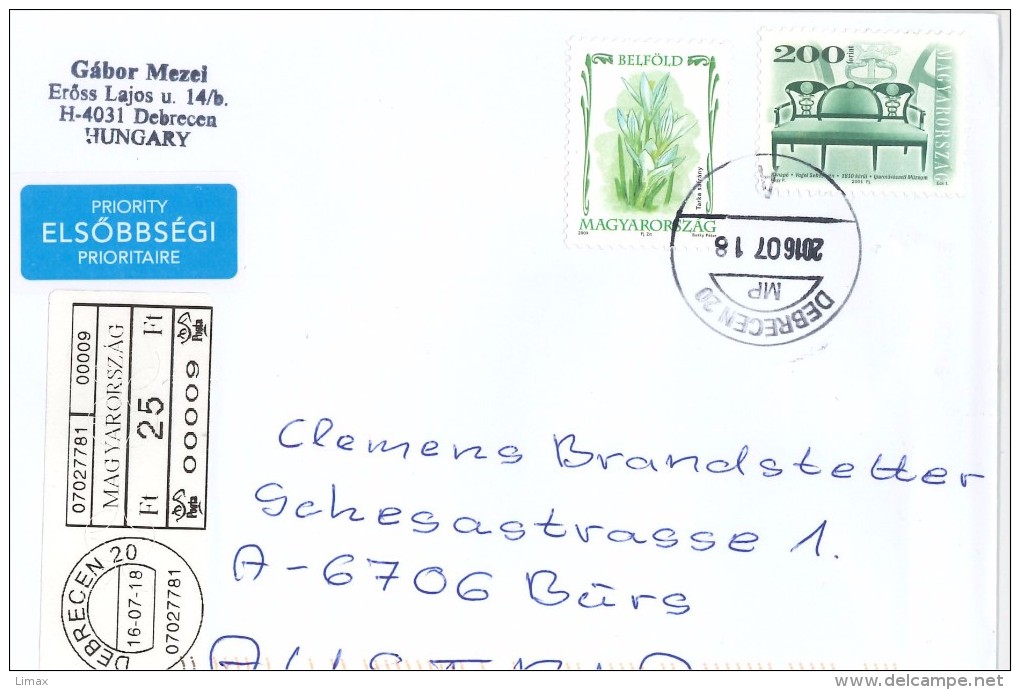 Gábor Mezei
Erőss Lajos u. 14/b.
H-4031 Debrecen
HUNGARY
PRIORITY
ELSŐBBSÉGI
PRIORITAIRE
BELFÖLD
Tarka sáfrány
MAGYARORSZÁG
200 forint
MAGYARORSZÁG
2016 07 18
MP
DEBRECEN 20
07027781 00009
MAGYARORSZÁG
Ft 25 Ft
Posta 00009 Posta
DEBRECEN 20
16-07-18
07027781
DEBRECEN
Clemens Brandstetter
Gchesastrasse 1.
A-6706 Bürs
AUSTRIA
Limax
delcampe.net